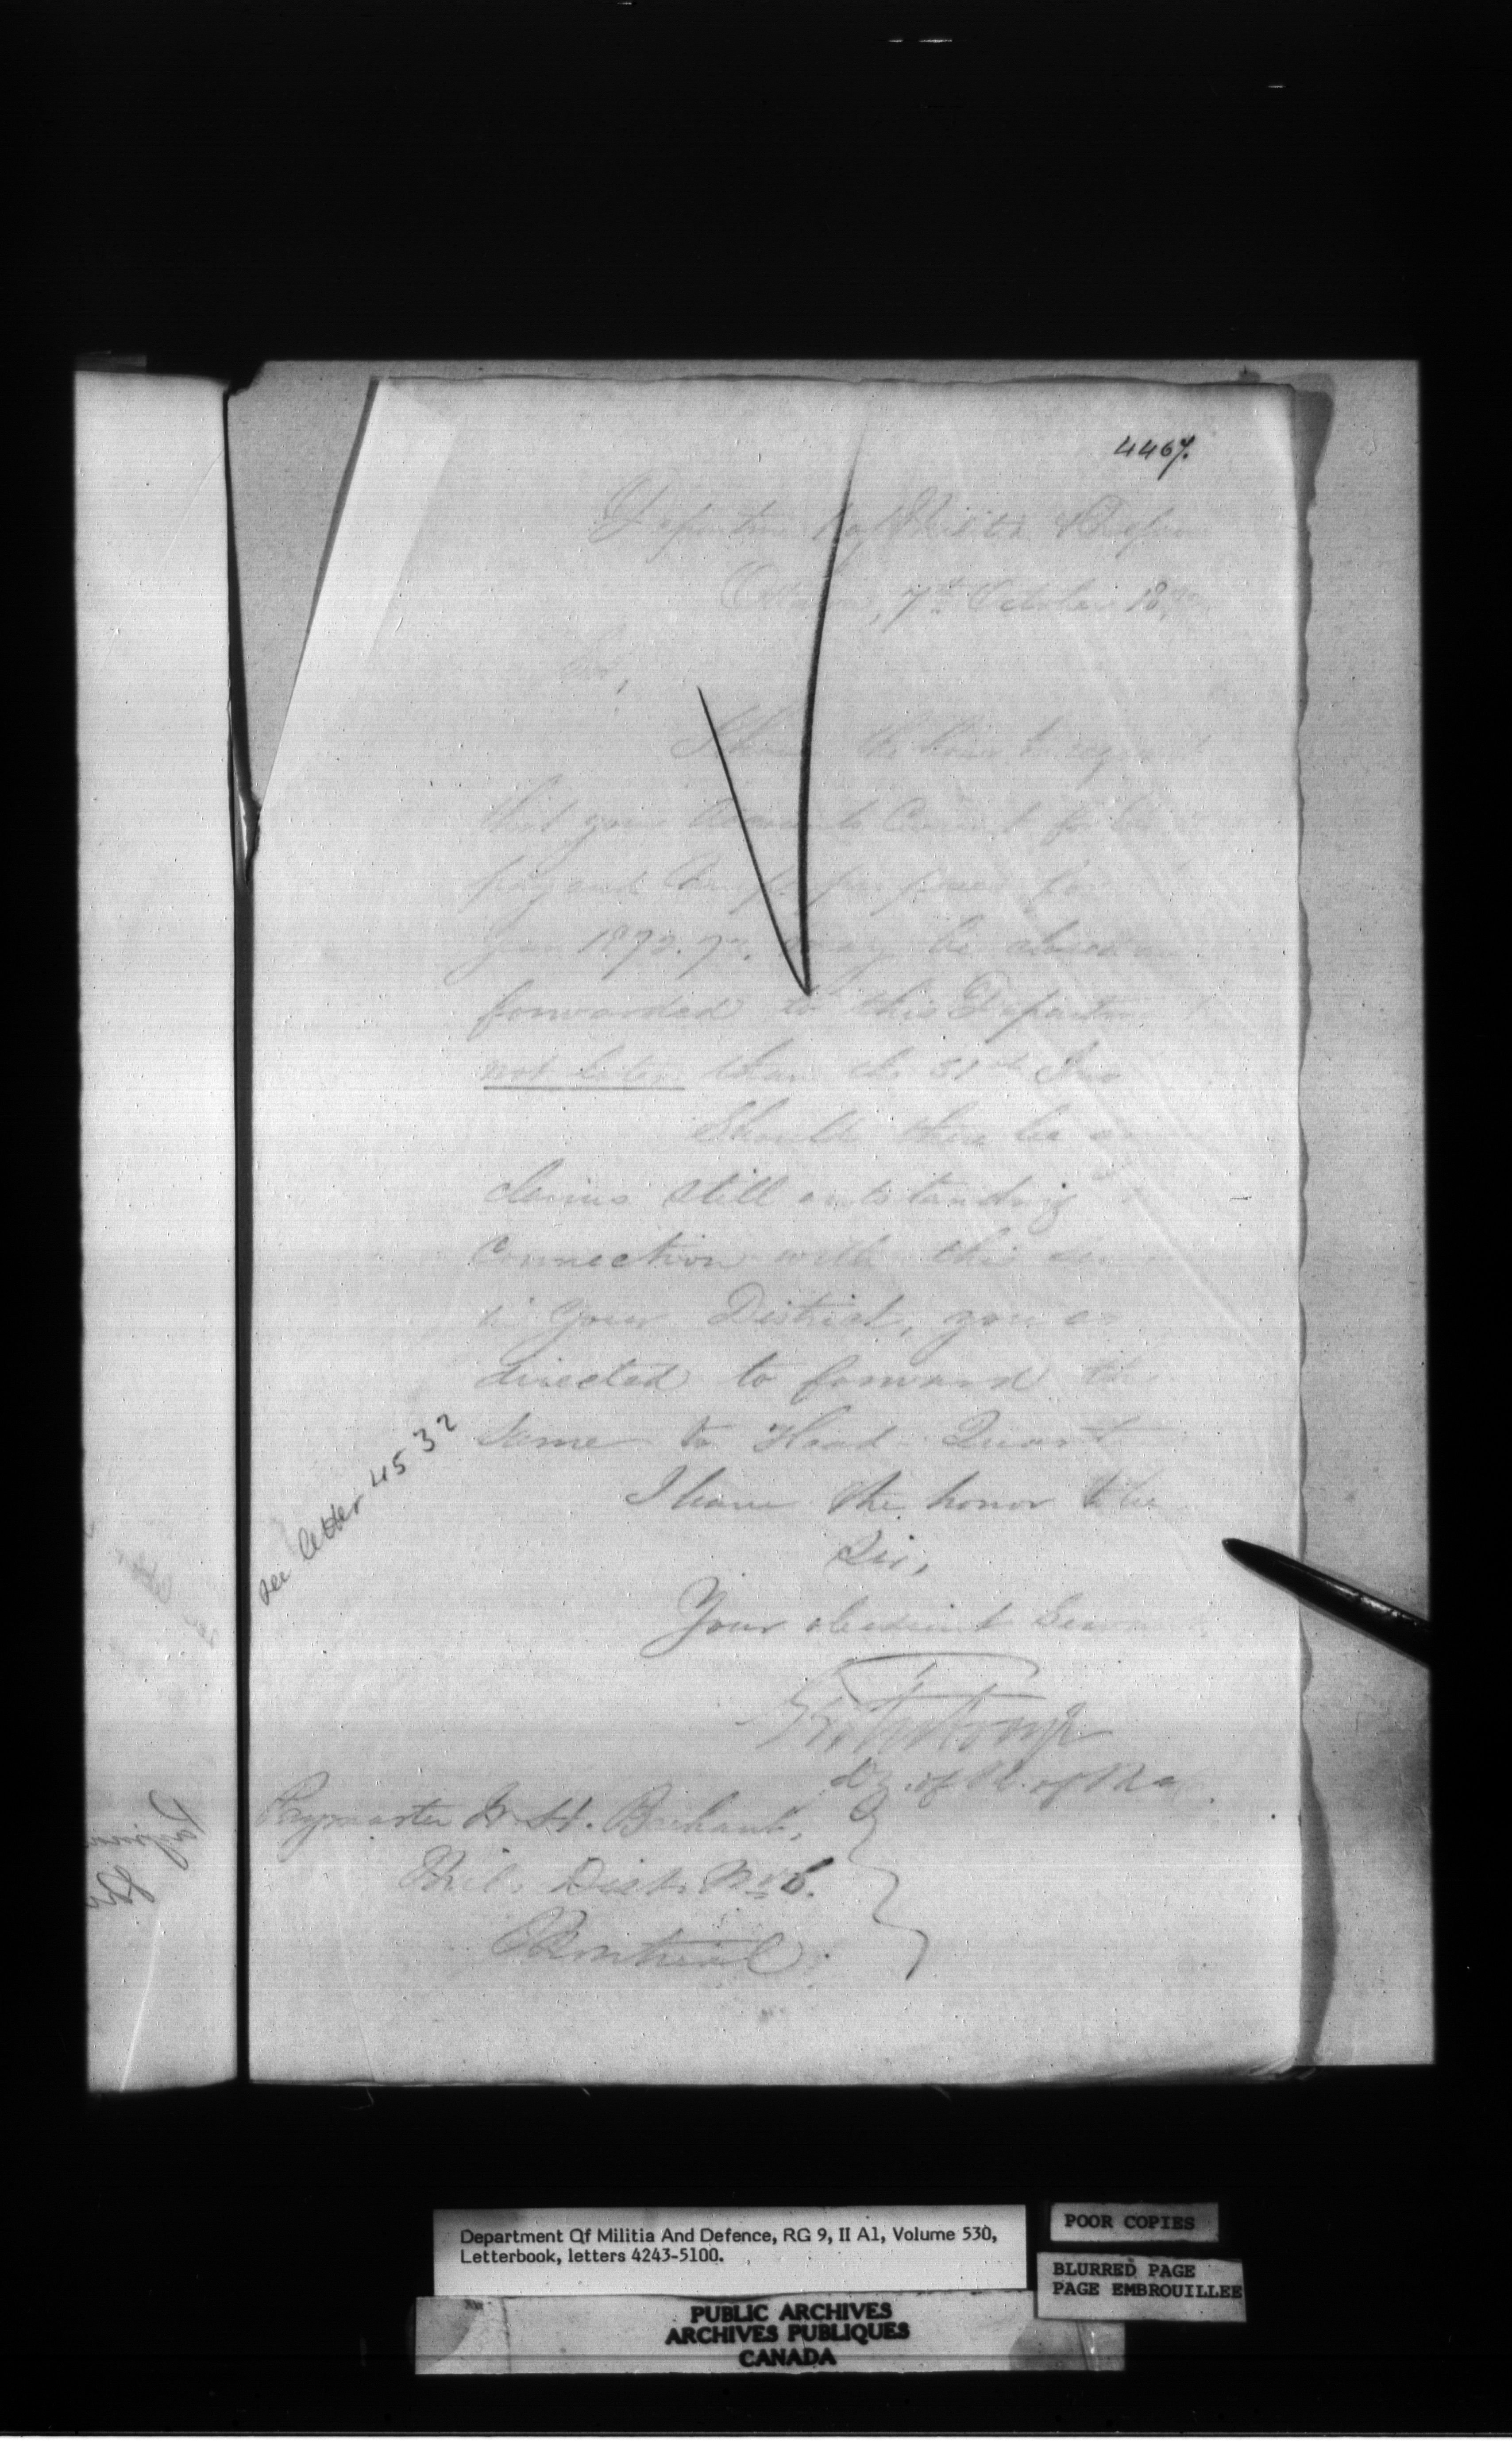 4467.
Department of Militia & Defen
Ottawa, 7th October 18
Sir,
I have the honor to req
that your Accounts Current for
pay and Camp purposes for
Year 1872.73. may be closed an
forwarded to this Departm
not later than the 31st Ins
Should there be an
claims still outstanding
Connection with this
in Your District, you
directed to forward the
same to Head Quart
I have the honor to be
Sir,
Your obedient Servant,
of M. of M
Paymaster
Mil. Dist. No 6.
Montreal
see letter 4532
Department Of Militia And Defence, RG 9, II A1, Volume 530,
Letterbook, letters 4243-5100.
POOR COPIES
BLURRED PAGE
PAGE EMBROUILLEE
PUBLIC ARCHIVES
ARCHIVES PUBLIQUES
CANADA